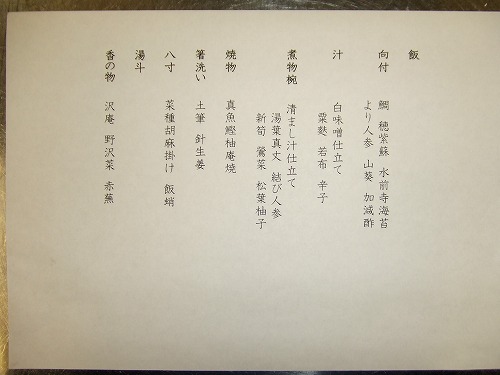 飯
向付　鯛　穂紫蘇　水前寺海苔
より人参　山葵　加減酢
汁　白味噌仕立て
粟麩　若布　辛子
煮物椀　清まし汁仕立て
湯葉真丈　結び人参
新筍　鶯菜　松葉柚子
焼物　真魚鰹柚庵焼
箸洗い　土筆　針生姜
八寸　菜種胡麻掛け　飯蛸
湯斗
香の物　沢庵　野沢菜　赤蕪